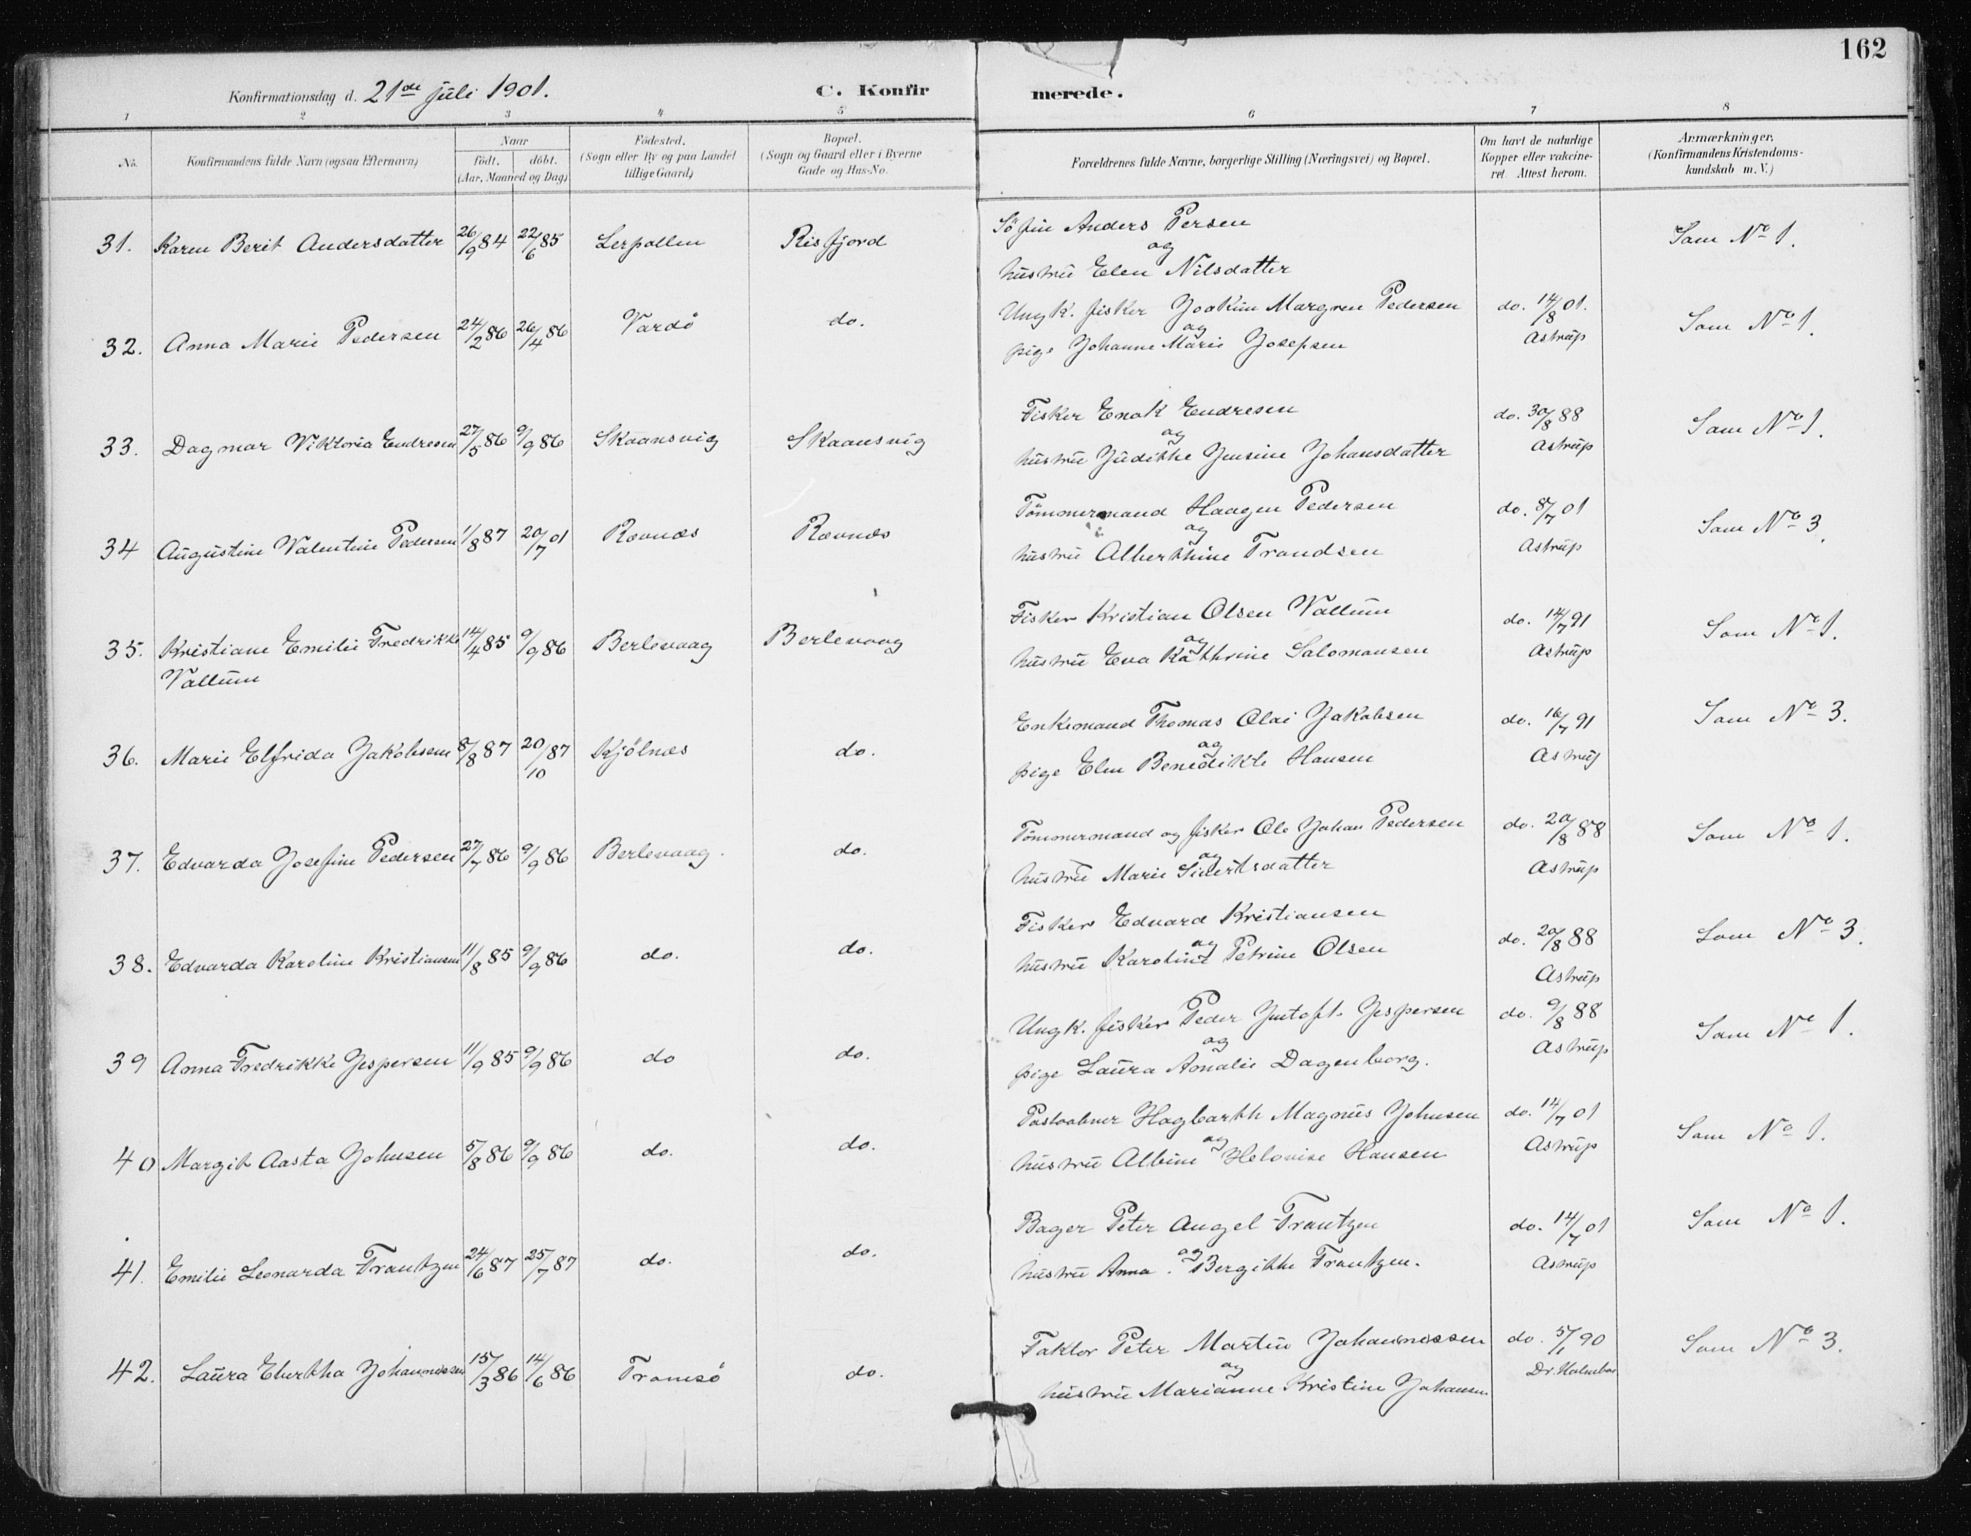 162
Konfirmationsdag d. 21de juli 1901. C. Konfirmerede.
1 2 3 4 5 6 7 8
No. Konfirmandens fulde Navn (ogsaa Efternavn) Naar født. døbt. (Aar, Maaned og Dag) Fødested. (Sogn eller By og paa Landet tillige Gaard) Bopæl. (Sogn og Gaard eller i Byerne Gade og Hus-No. Forældrenes fulde Navne, borgerlige Stilling (Næringsvei) og Bopæl. Om havt de naturlige Kopper eller vakcineret. Attest herom. Anmærkninger. (Konfirmandens Kristendomskundskab m. V.)
31. Karen Berit Andersdatter 26/9 84 22/6 85 Lerpollen Risfjord Söfin Anders Persen Som No 1.
og
hustru Elen Nilsdatter
32. Anna Marie Pedersen 24/2 86 26/4 86 Vardö do. Ungk. fisker Joakim Margren Pedersen do. 14/8 01. Som No 1.
og
pige Johanne Marie Josefsen Astrup
33. Dagmar Viktoria Endresen 27/5 86 9/9 86 Skaansvig Skaansvig Fisker Enok Endresen do. 30/8 88 Som No 1.
og
hustru Judikke Jensine Johansdatter Astrup
34 Augustine Valentine Pedersen 1/8 87 20/7 01 Rævnæs Rævnæs Tömmermand Haagen Pedersen do. 8/7 01 Som No 3.
og
hustru Alberthine Trandsen Astrup
35. Kristiane Emilie Fredrikke 14/4 85 9/9 86 Berlevaag Berlevaag Fisker Kristian Olsen Vallum do. 14/7 91 Som No 1.
Vallum
og
hustru Eva Kathrine Salomonsen Astrup
36. Marie Elfrida Jakobsen 8/8 87 20/10 87 Kjölnes do. Enkemand Thomas Olai Jakobsen do. 16/7 91 Som No 3.
og
pige Elen Benedikte Hansen Astrup
37. Edvarda Josefine Pedersen 27/7 86 9/9 86 Berlevaag. do. Tömmermand og fisker Ole Johan Pedersen do. 20/8 88 Som No 1.
og
hustru Marie Sivertsdatter Astrup
38. Edvarda Karoline Kristiansen 11/8 85 9/9 86 do. do. Fisker Edvard Kristiansen do. 20/8 88 Som No 3.
og
hustru Karoline Petrine Olsen Astrup
39 Anna Fredrikke Jespersen 11/9 85 9/9 86 do do. Ungk. fisker Peder Jespersen do. 9/8 88 Som No 1.
og
pige Laura Amalie Dagenborg. Astrup
40 Margit Aasta Johnsen 5/8 86 9/9 86 do. do. Postaabner Hagbarth Magnus Johnsen do. 14/7 01 Som No 1.
og
hustru Albine Helovise Hansen Astrup
41. Emilie Leonarda Frantzen 24/6 87 25/7 87 do. do. Bager Peter Angel Frantzen do. 14/7 01 Som No 1.
og
hustru Anna Bergitte Frantzen. Astrup
42. Laura Ebertha Johannessen 15/3 86 14/6 86 Tromsö do. Faktor Peter Martin Johannessen do. 5/1 90 Som No 3.
og
hustru Marianne Kristine Johansen Dr. Holmboe